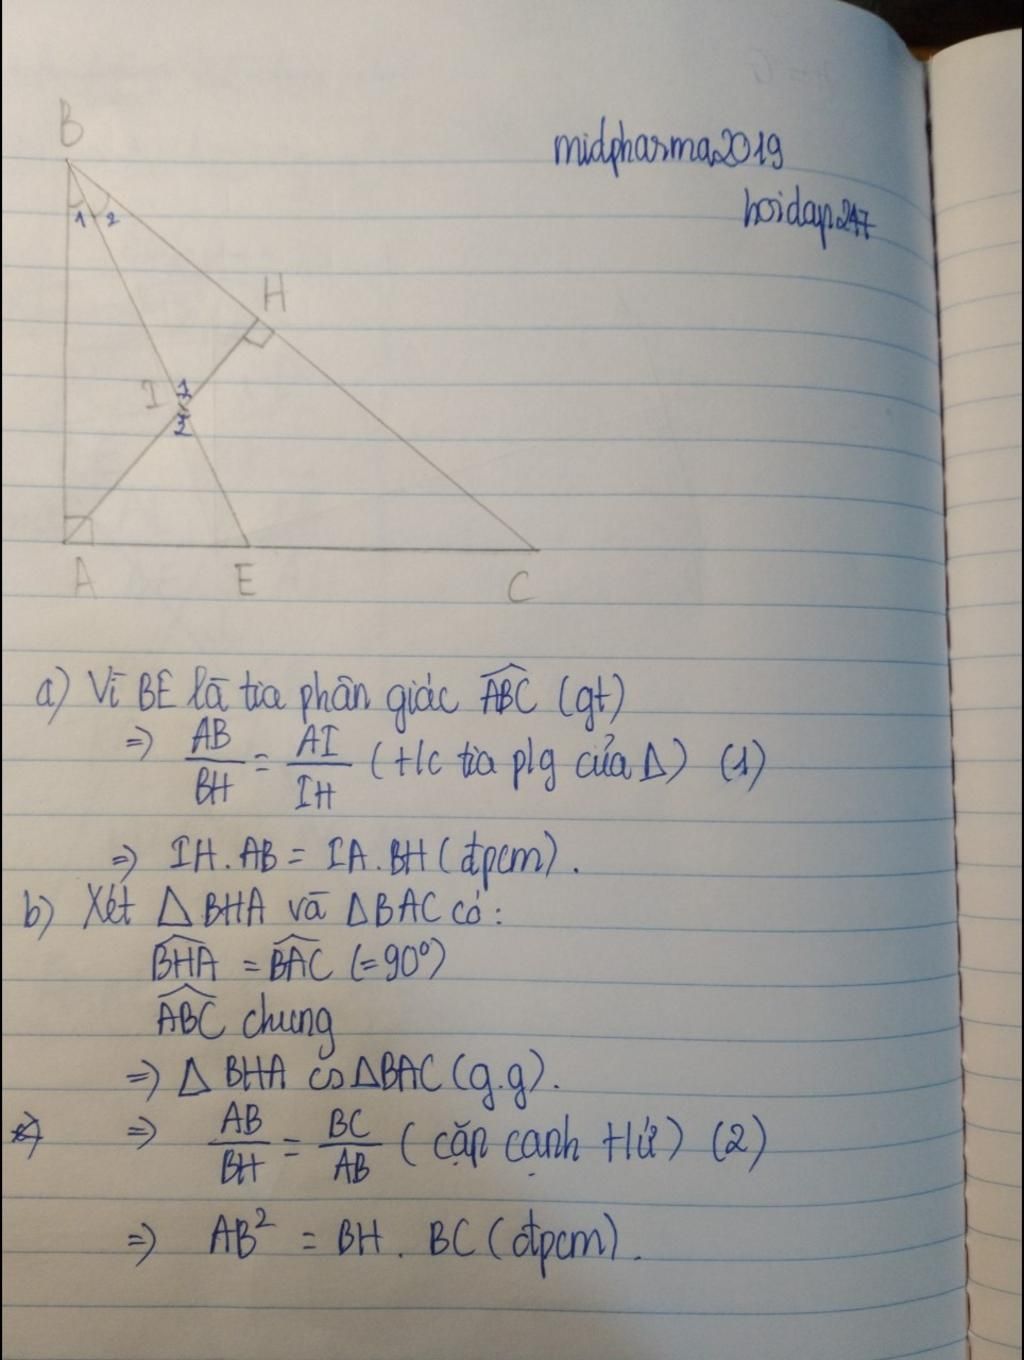 midpharma2019
hoidap247
B
1 2
H
I 1
2
A E C
a) Vì BE là tia phân giác ABC (gt)
=> AB/BH = AI/IH (t/c tia p/g của Δ) (1)
=> IH.AB = IA.BH (đpcm).
b) Xét Δ BHA và ΔBAC có:
BHA = BAC (=90°)
ABC chung
=> Δ BHA ∽ ΔBAC (g.g).
=> AB/BH = BC/AB (cặp cạnh t/ứ) (2)
=> AB² = BH . BC (đpcm).